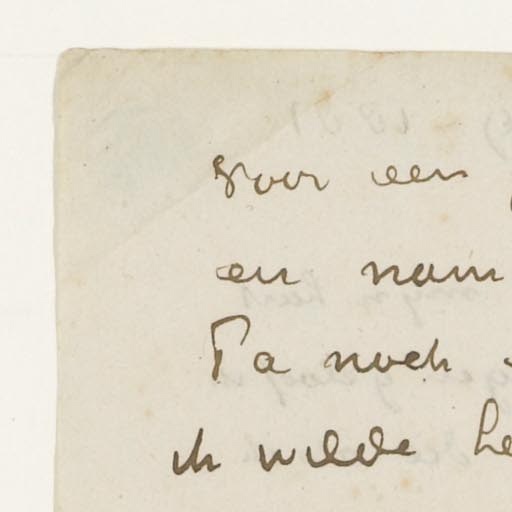 voor een
en nam
Ta noch
ik wilde he